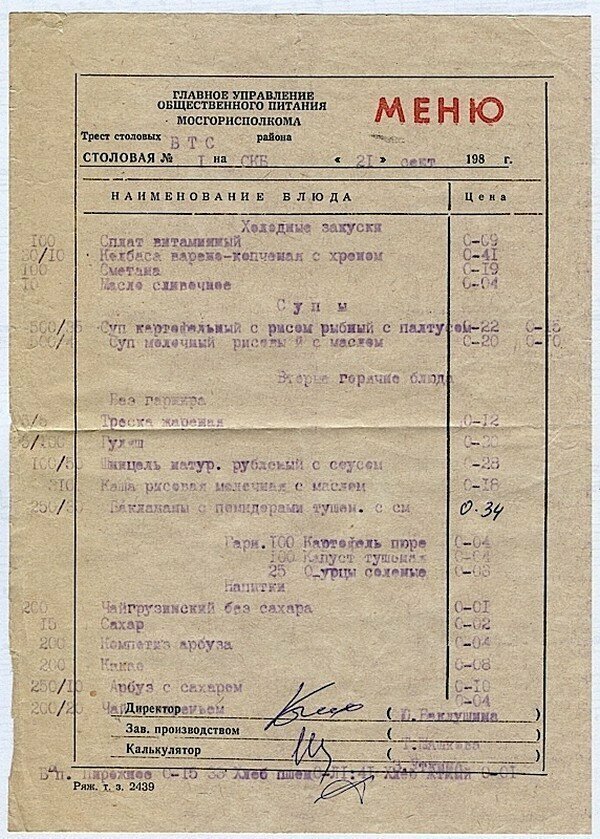 ГЛАВНОЕ УПРАВЛЕНИЕ
ОБЩЕСТВЕННОГО ПИТАНИЯ
МОСГОРИСПОЛКОМА
МЕНЮ
Трест столовых ВТС района
СТОЛОВАЯ № I на СКБ « 21 » сент 198 г.
НАИМЕНОВАНИЕ БЛЮДА Цена
Холодные закуски
100 Сплат витаминный 0-09
30/10 Колбаса варено-копченая с хреном 0-41
100 Сметана 0-19
10 Масло сливочное 0-04
Супы
500/35 Суп картофельный с рисом рыбный с палтусом 0-22 0-15
Суп молочный рисовый с маслом 0-20 0-10
Вторые горячие блюда
Без гарнира
Треска жареная 0-12
Гуляш 0-20
100/50 Шницель натур. рубленый с соусом 0-28
310 Каша рисовая молочная с маслом 0-18
250/30 Баклажаны с помидорами тушен. с см 0-34
Гарн. 100 Картофель пюре 0-04
100 Капуст тушеная 0-04
25 О_урцы соленые 0-03
Напитки
200 Чай грузинский без сахара 0-01
15 Сахар 0-02
200 Компот из арбуза 0-04
200 Какао 0-08
250/10 Арбуз с сахаром 0-10
200/20 Чай 0-04
Директор ( О. Баклушина )
Зав. производством ( )
Калькулятор ( )
В п. Пирожное 0-15 33 Хлеб
Ряж. т. з. 2439